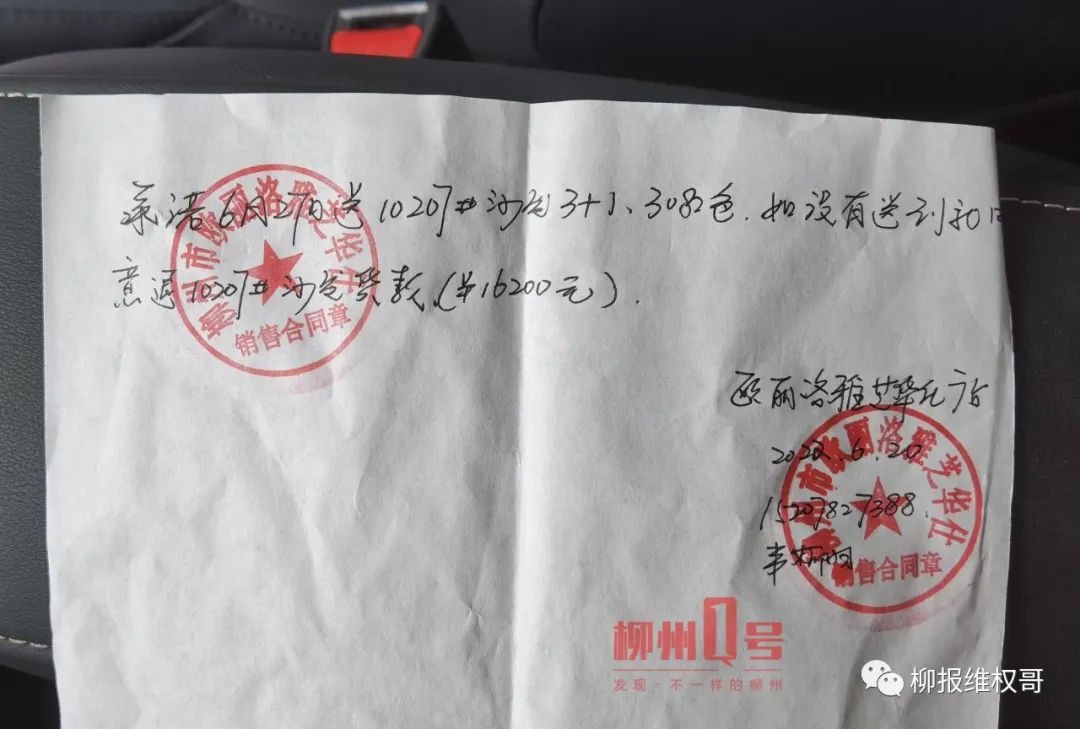 承诺6月27日送1027#沙发3+1、308色.如没有送到初同
意退1027#沙发货款(¥16200元).
市欧丽洛雅芝华仕
销售合同章
欧丽洛雅芝华仕店
2022.6.20
15207827388.
市欧丽洛雅芝华仕
销售合同章
柳州Q号
发现·不一样的柳州
柳报维权哥